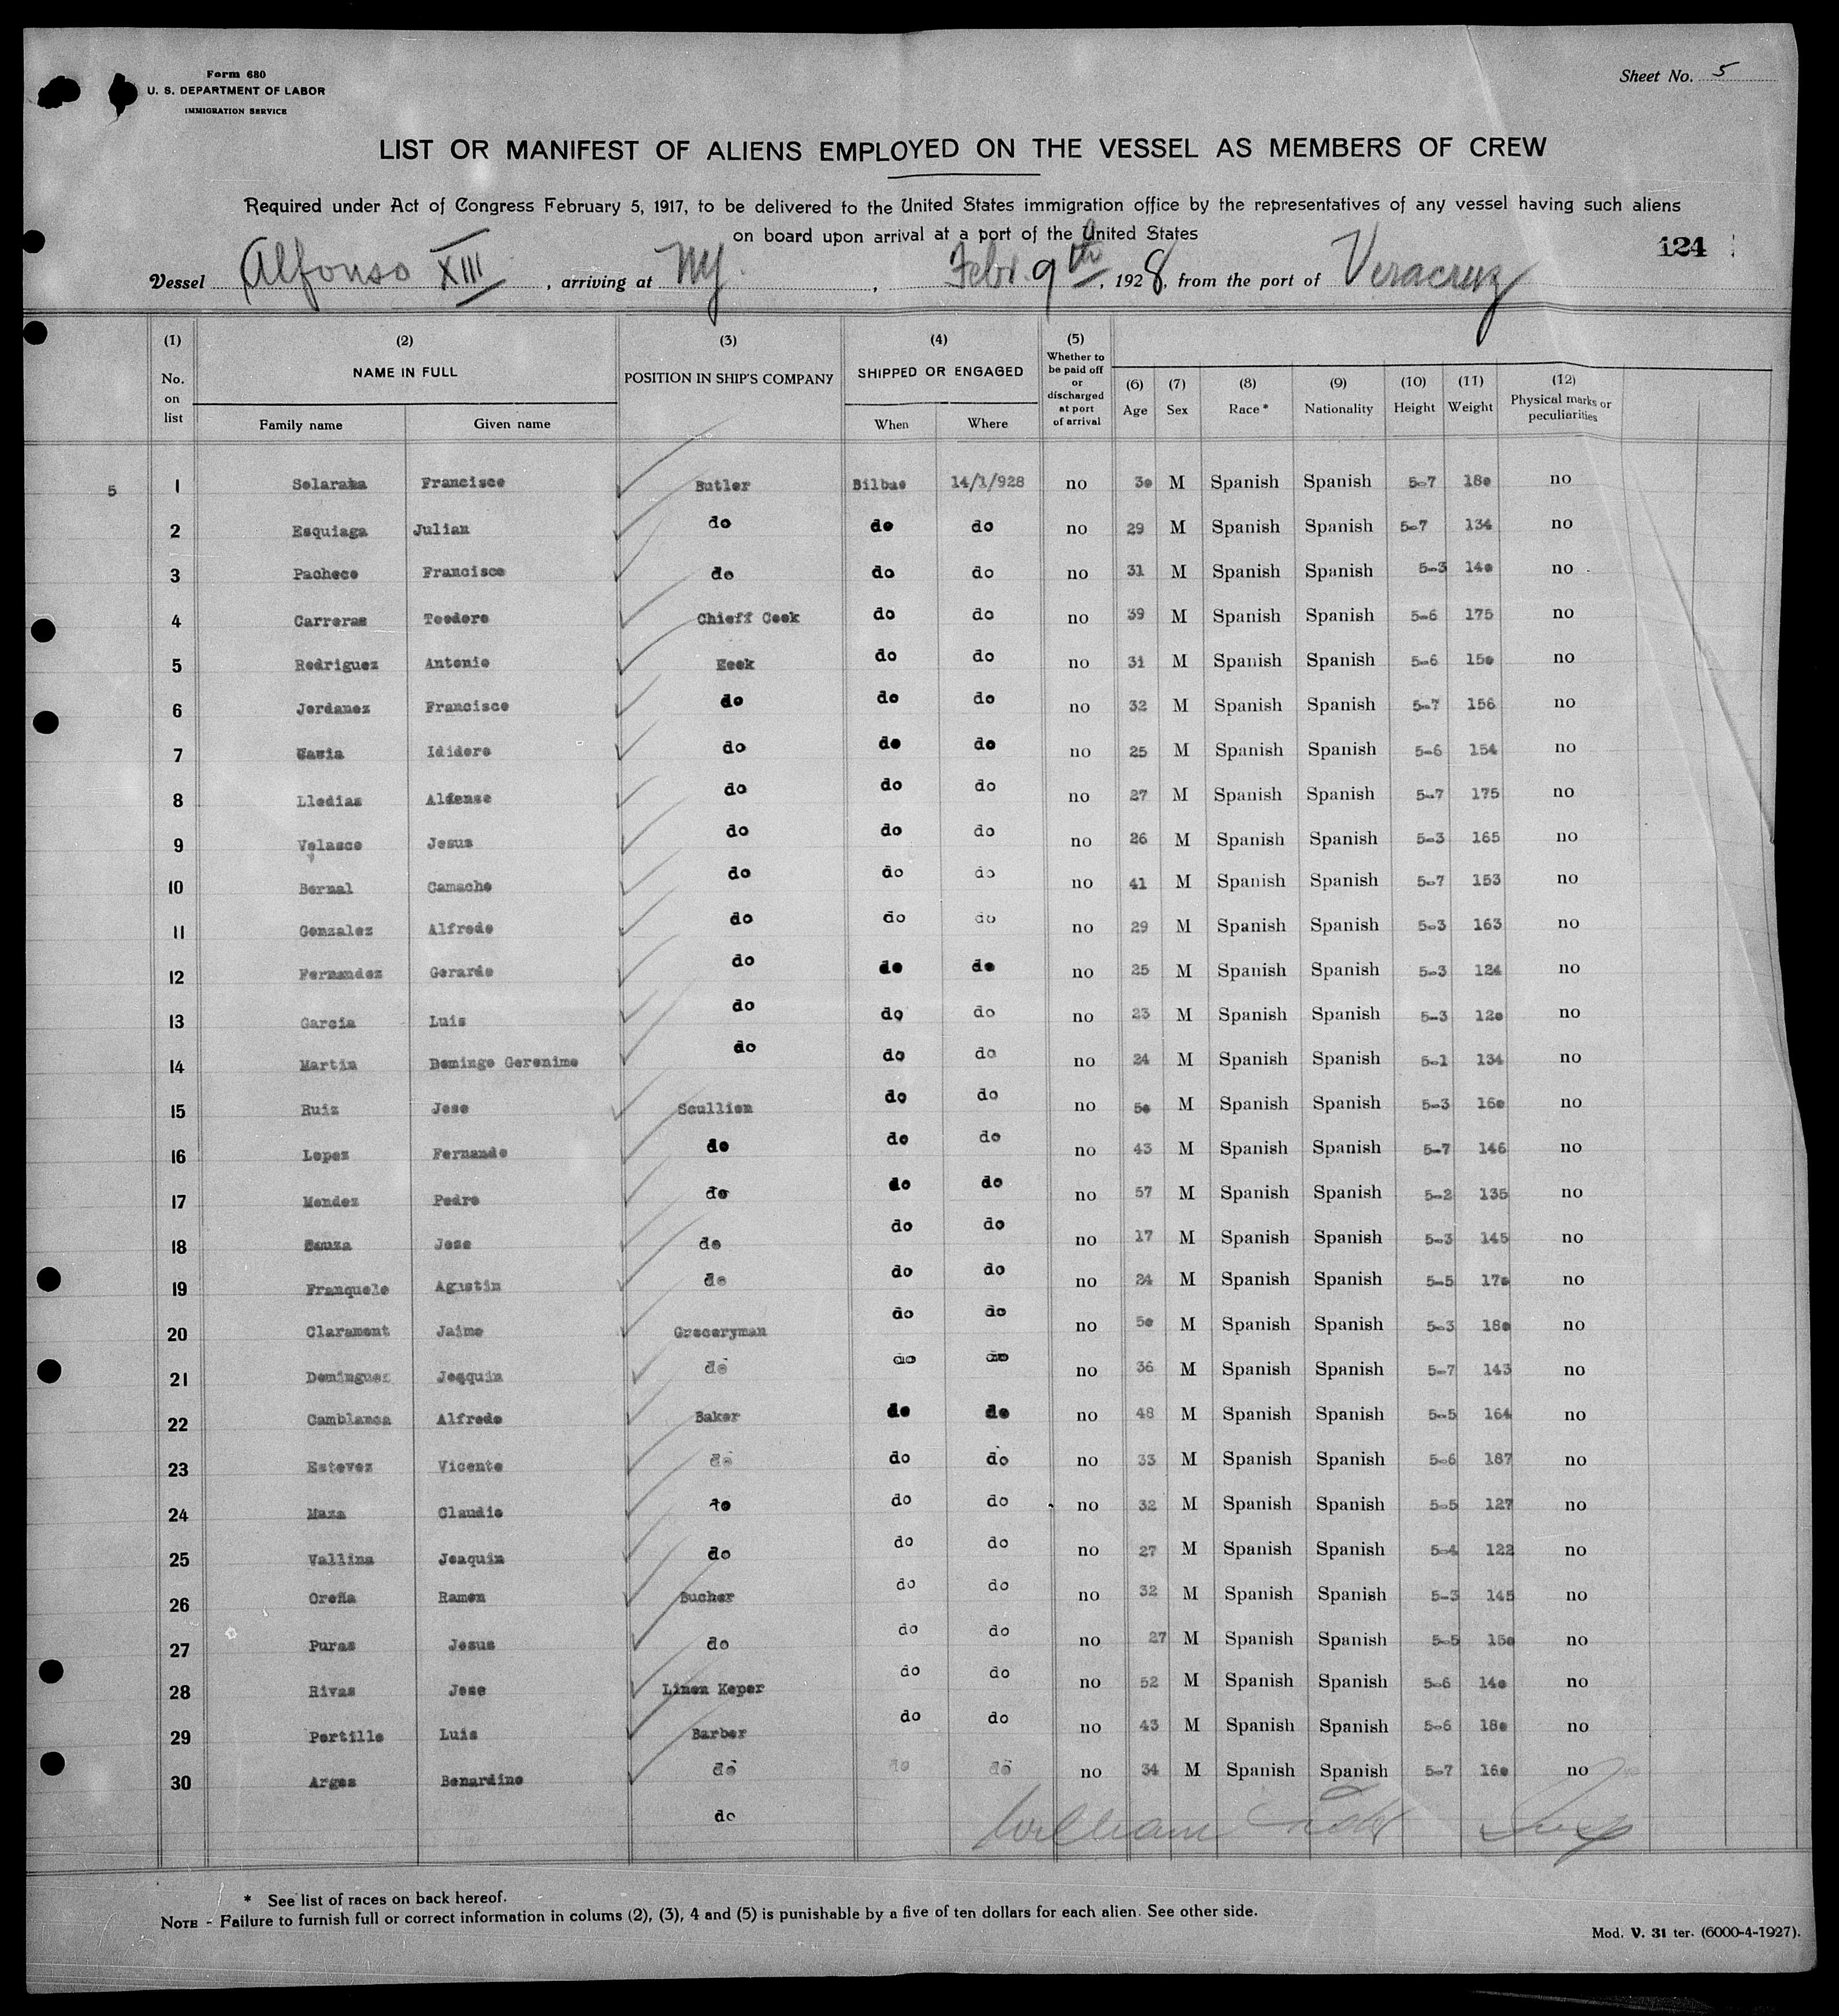 Form 680
U. S. DEPARTMENT OF LABOR
IMMIGRATION SERVICE
Sheet No. 5
LIST OR MANIFEST OF ALIENS EMPLOYED ON THE VESSEL AS MEMBERS OF CREW
Required under Act of Congress February 5, 1917, to be delivered to the United States immigration office by the representatives of any vessel having such aliens
on board upon arrival at a port of the United States
124
Vessel Alfonso XIII, arriving at NY, Febr. 9th, 1928, from the port of Veracruz
(1) No. on list (2) NAME IN FULL Family name Given name (3) POSITION IN SHIP'S COMPANY (4) SHIPPED OR ENGAGED When Where (5) Whether to be paid off or discharged at port of arrival (6) Age (7) Sex (8) Race* (9) Nationality (10) Height (11) Weight (12) Physical marks or peculiarities
5 1 Francisco Butler Bilbao 14/1/928 no 30 M Spanish Spanish 5-7 180 no
2 Esquiaga Julian do do do no 29 M Spanish Spanish 5-7 134 no
3 Pacheco Francisco do do do no 31 M Spanish Spanish 5-3 140 no
4 Carreras Teodoro Chieff Cook do do no 39 M Spanish Spanish 5-6 175 no
5 Rodriguez Antonio Kook do do no 31 M Spanish Spanish 5-6 150 no
6 Jordanez Francisco do do do no 32 M Spanish Spanish 5-7 156 no
7 Ididoro do do do no 25 M Spanish Spanish 5-6 154 no
8 Lledias do do do no 27 M Spanish Spanish 5-7 175 no
9 Velasco Jesus do do do no 26 M Spanish Spanish 5-3 165 no
10 Bernal Camacho do do do no 41 M Spanish Spanish 5-7 153 no
11 Gonzalez Alfredo do do do no 29 M Spanish Spanish 5-3 163 no
12 Fernandez Gerardo do do do no 25 M Spanish Spanish 5-3 124 no
13 Garcia Luis do do do no 23 M Spanish Spanish 5-3 120 no
14 Martin Domingo Geronimo do do do no 24 M Spanish Spanish 5-1 134 no
15 Ruiz Jose Scullion do do no 50 M Spanish Spanish 5-3 160 no
16 Lopez Fernando do do do no 43 M Spanish Spanish 5-7 146 no
17 Mendez Pedro do do do no 57 M Spanish Spanish 5-2 135 no
18 Jose do do do no 17 M Spanish Spanish 5-3 145 no
19 Franquelo Agustin do do do no 24 M Spanish Spanish 5-5 170 no
20 Claramont Jaime Groceryman do do no 50 M Spanish Spanish 5-3 180 no
21 Dominguez Joaquin do do do no 36 M Spanish Spanish 5-7 143 no
22 Camblanca Alfredo Baker do do no 48 M Spanish Spanish 5-5 164 no
23 Estevez Vicente do do do no 33 M Spanish Spanish 5-6 187 no
24 Maza Claudio to do do no 32 M Spanish Spanish 5-5 127 no
25 Vallina Joaquin do do do no 27 M Spanish Spanish 5-4 122 no
26 Oreña Ramon Bucher do do no 32 M Spanish Spanish 5-3 145 no
27 Puras Jesus do do do no 27 M Spanish Spanish 5-5 150 no
28 Rivas Jose Linen Keper do do no 52 M Spanish Spanish 5-6 140 no
29 Portillo Luis Barber do do no 43 M Spanish Spanish 5-6 180 no
30 Argos Benardino do do do no 34 M Spanish Spanish 5-7 160 no
do William
* See list of races on back hereof.
NOTE - Failure to furnish full or correct information in colums (2), (3), 4 and (5) is punishable by a five of ten dollars for each alien. See other side.
Mod. V. 31 ter. (6000-4-1927).